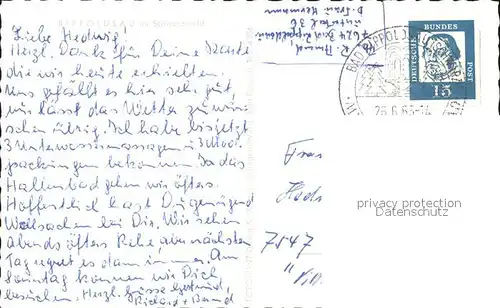 RIPPOLDSAU im Schwarzwald
Liebe Hedwig!
Herzl. Dank für Deine Karte
die wir heute erhielten.
Uns gefällt es hier sehr gut,
nur lässt das Wetter zu wün-
schen übrig. Ich habe bis jetzt
3 Unterwassermassagen u. 3 Moor-
packungen bekommen. In das
Hallenbad gehen wir öfters.
Hoffentlich hast Du genügend
Wollsachen bei Dir. Wir sehen
abends öfters Rehe, aber nächsten
Tag regnet es dann immer. Am
Sonntag kommen wir Dich
besuchen. Herzl. Grüsse Gertrud,
Richard +
7624 Bad Rippoldsau
BAD RIPPOLDSAU
26.6.65-14
DEUTSCHE BUNDESPOST
15
Frau
7547
privacy protection
Datenschutz